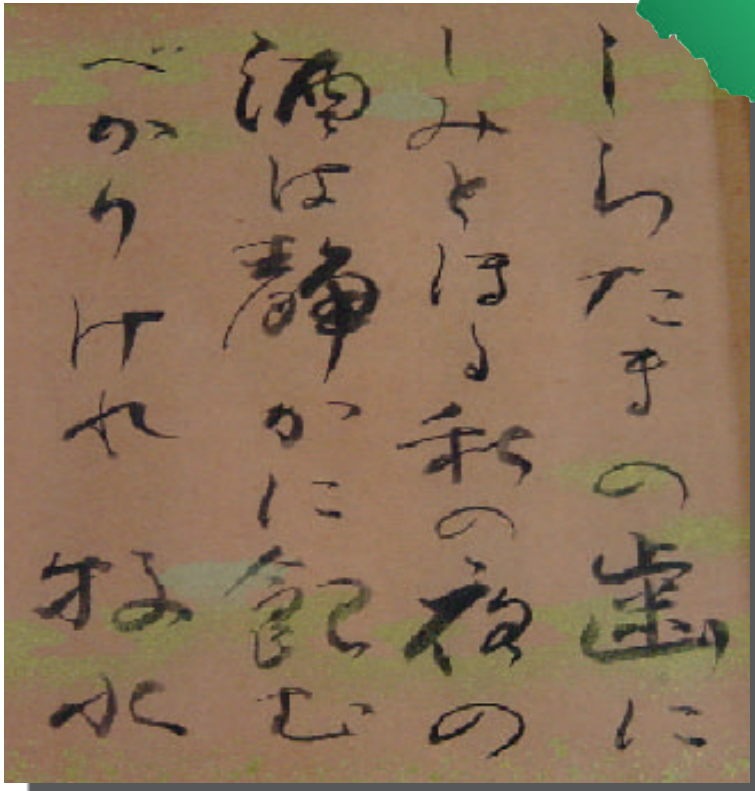 しらたまの歯に
しみとほる秋の夜の
酒は静かに飲む
べかりけれ 牧水